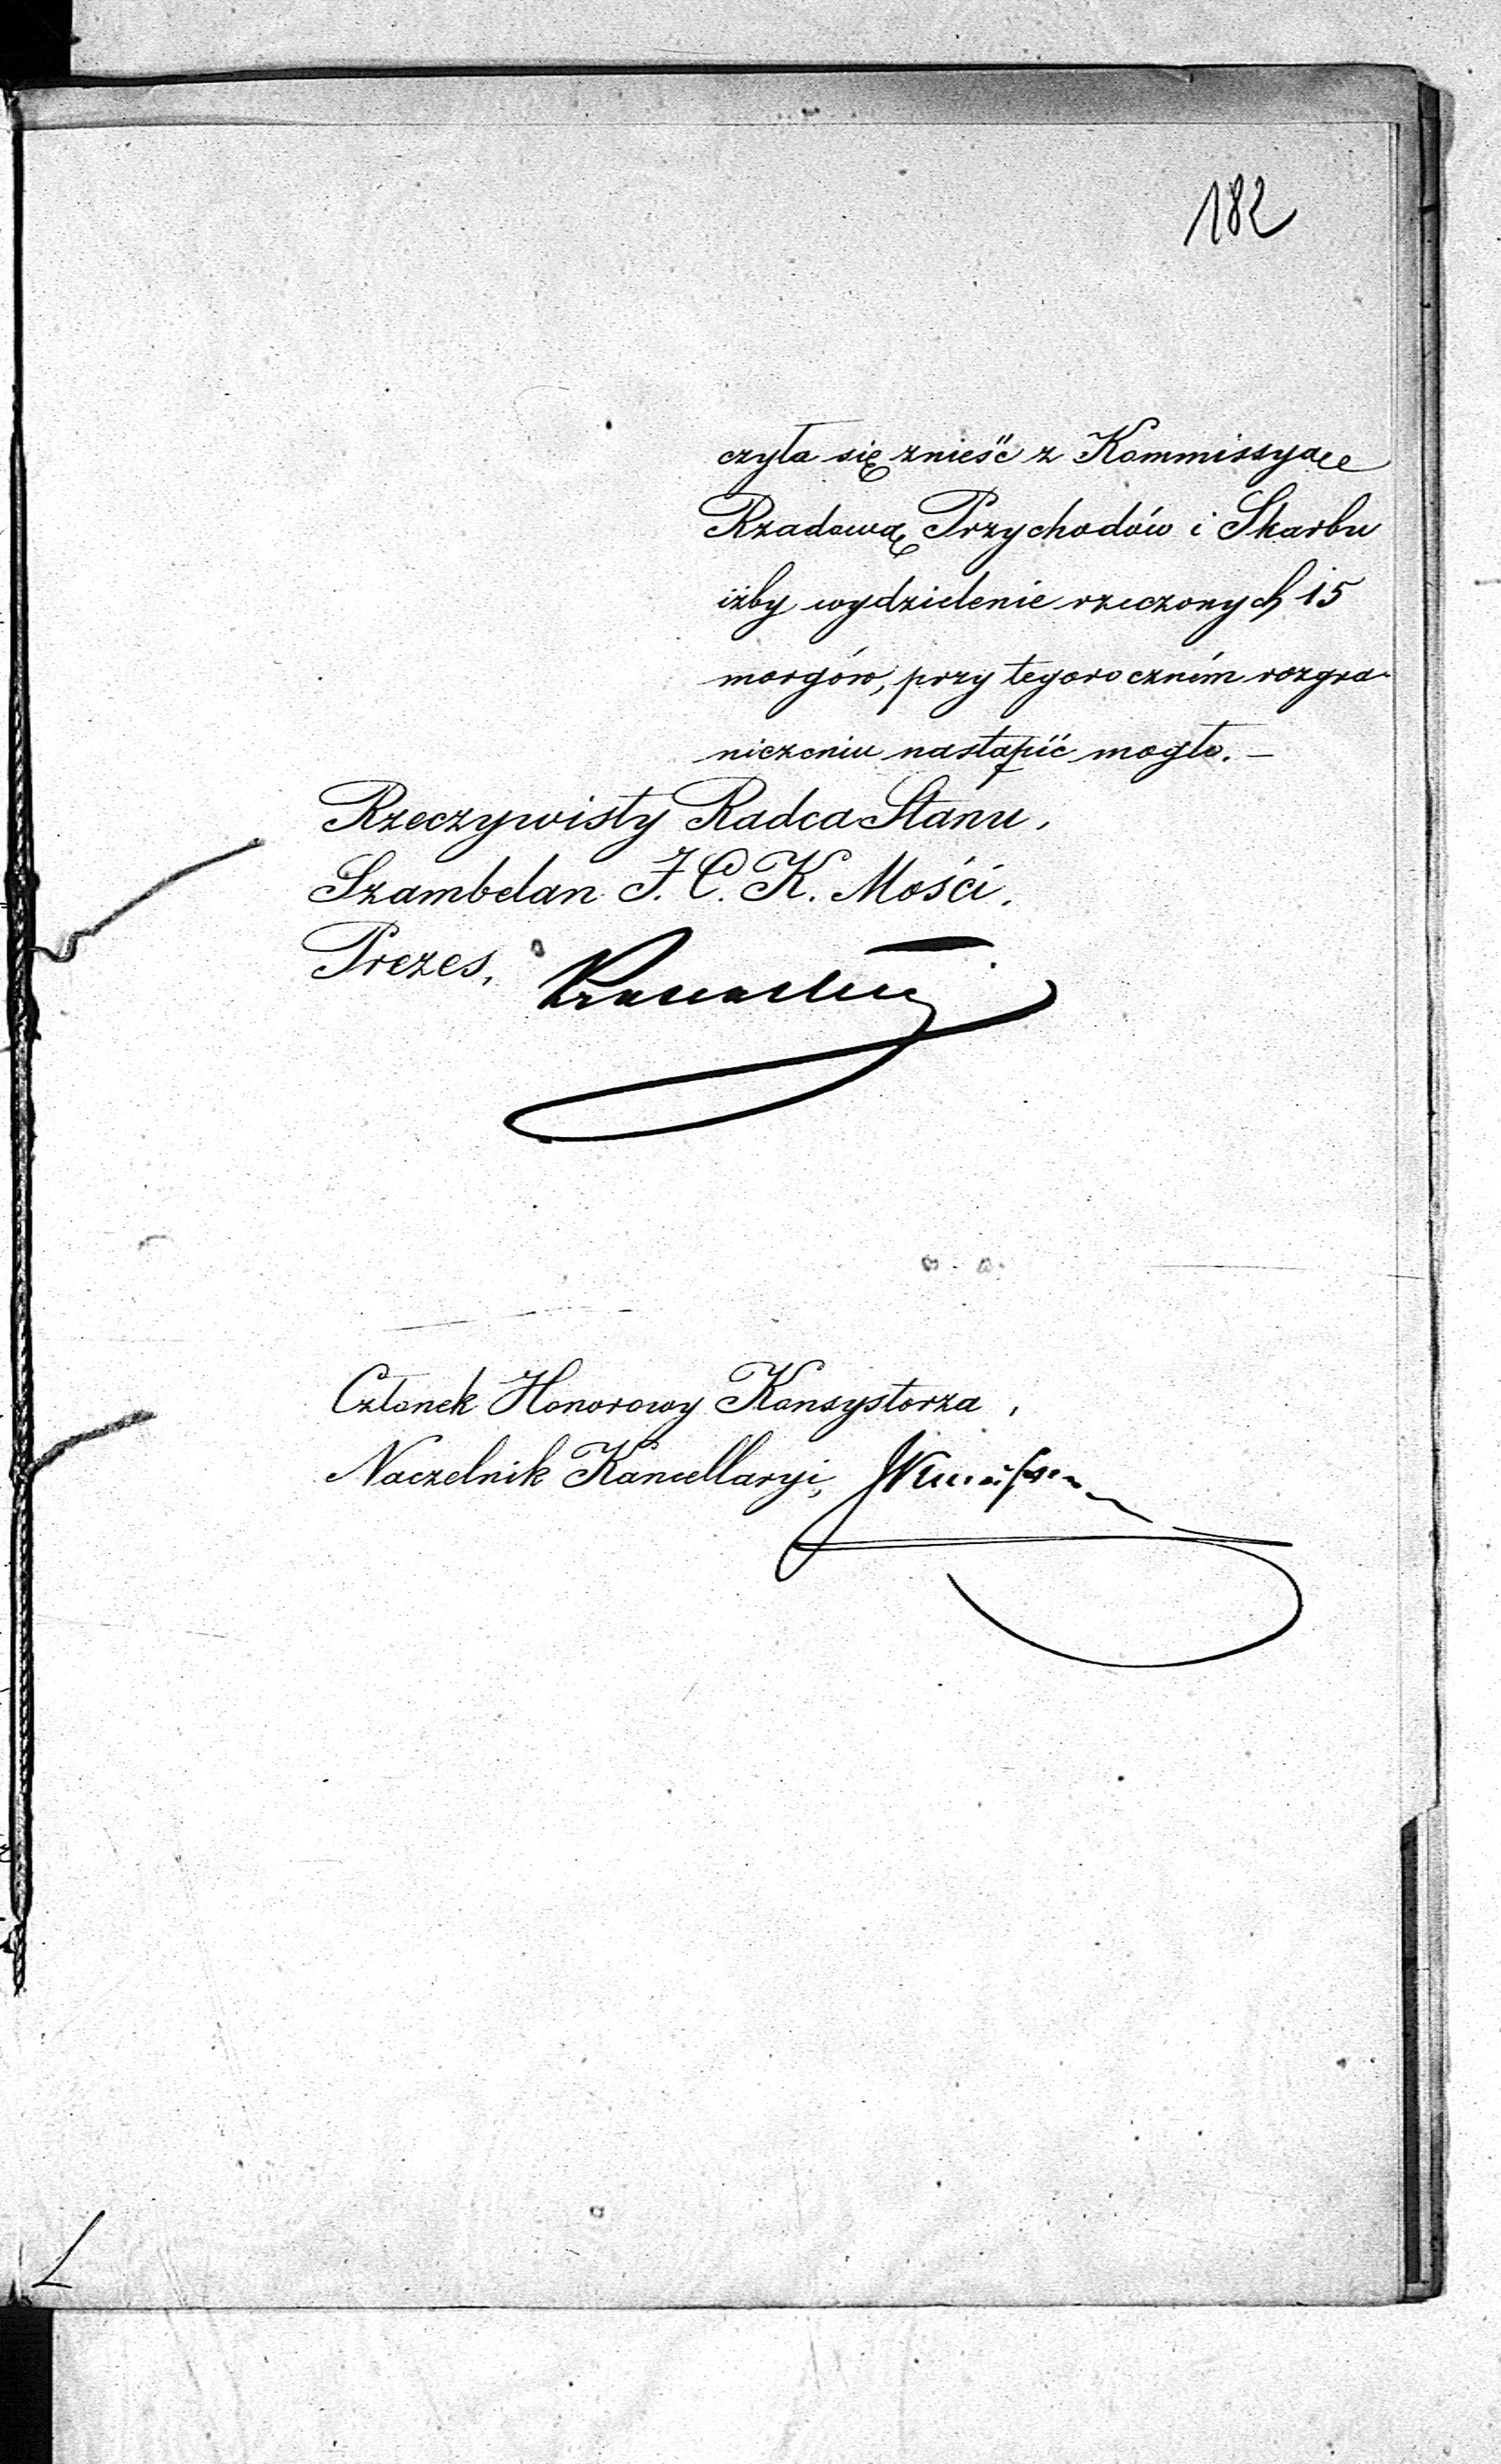 182
czyła się znieść z Kommissyą
Rządową Przychodów i Skarbu
iżby wydzielenie rzeczonych 15
morgów, przy tegoroczném rozgra-
niczeniu nastąpić mogło. —
Rzeczywisty Radca Stanu,
Szambelan J. C. K. Mości,
Prezes,
Członek Honorowy Konsystorza,
Naczelnik Kancellaryi,